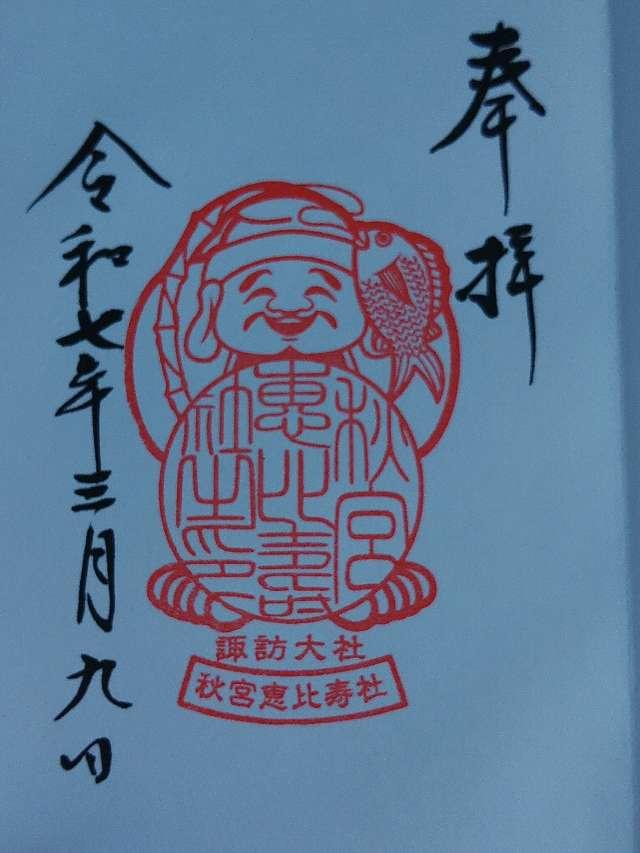 奉拝
秋宮
恵比壽
社之印
諏訪大社
秋宮恵比寿社
令和七年三月九日